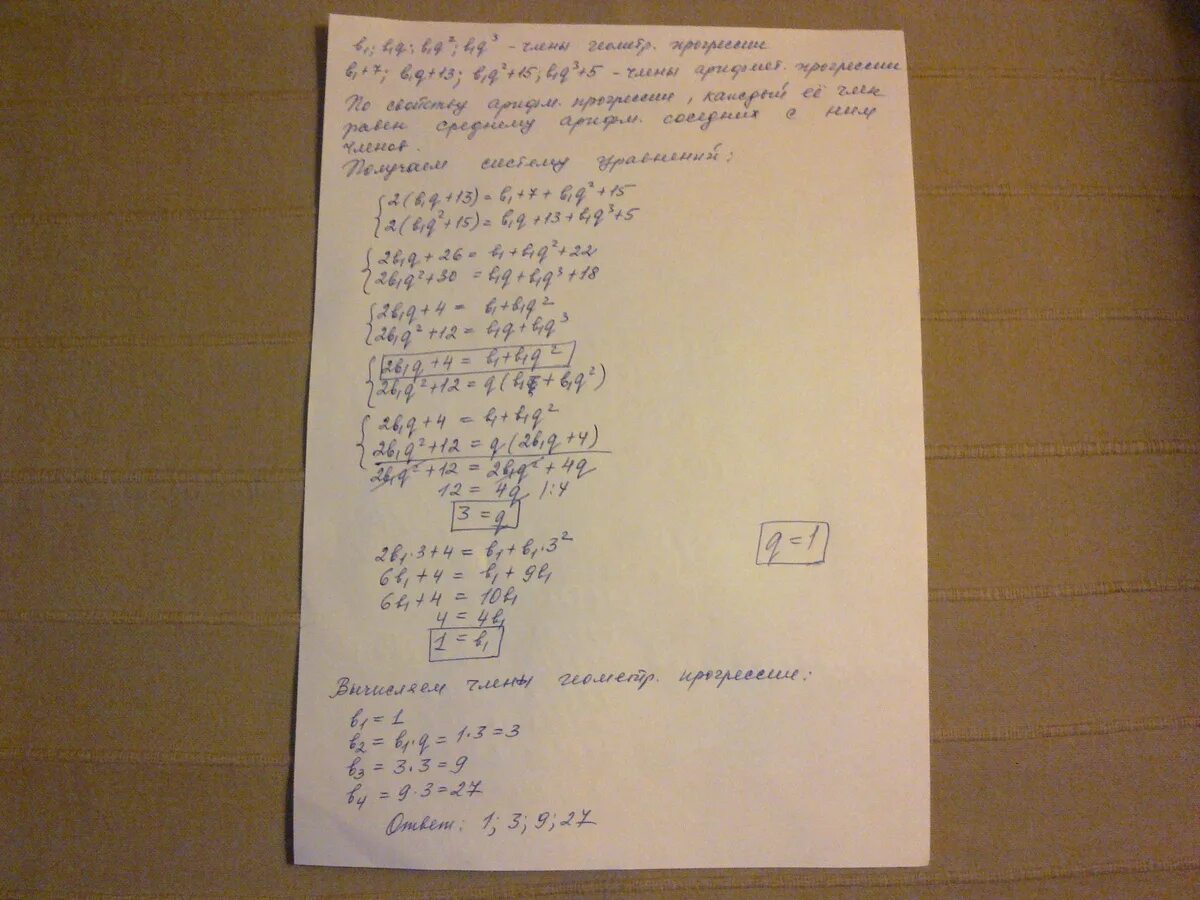 b₁; b₁q; b₁q²; b₁q³ - члены геометр. прогрессии
b₁+7; b₁q+13; b₁q²+15; b₁q³+5 - члены арифмет. прогрессии
По свойству арифм. прогрессии, каждый её член
равен среднему арифм. соседних с ним
членов.
Получаем систему уравнений:
{2(b₁q+13) = b₁+7+b₁q²+15
{2(b₁q²+15) = b₁q+13+b₁q³+5
{2b₁q+26 = b₁+b₁q²+22
{2b₁q²+30 = b₁q+b₁q³+18
{2b₁q+4 = b₁+b₁q²
{2b₁q²+12 = b₁q+b₁q³
{2b₁q+4 = b₁+b₁q²
{2b₁q²+12 = q(b₁+b₁q²)
{2b₁q+4 = b₁+b₁q²
{2b₁q²+12 = q(2b₁q+4)
2b₁q²+12 = 2b₁q²+4q
12 = 4q |:4
3 = q
q = 1
2b₁·3+4 = b₁+b₁·3²
6b₁+4 = b₁+9b₁
6b₁+4 = 10b₁
4 = 4b₁
1 = b₁
Вычисляем члены геометр. прогрессии:
b₁ = 1
b₂ = b₁·q = 1·3 = 3
b₃ = 3·3 = 9
b₄ = 9·3 = 27
Ответ: 1; 3; 9; 27